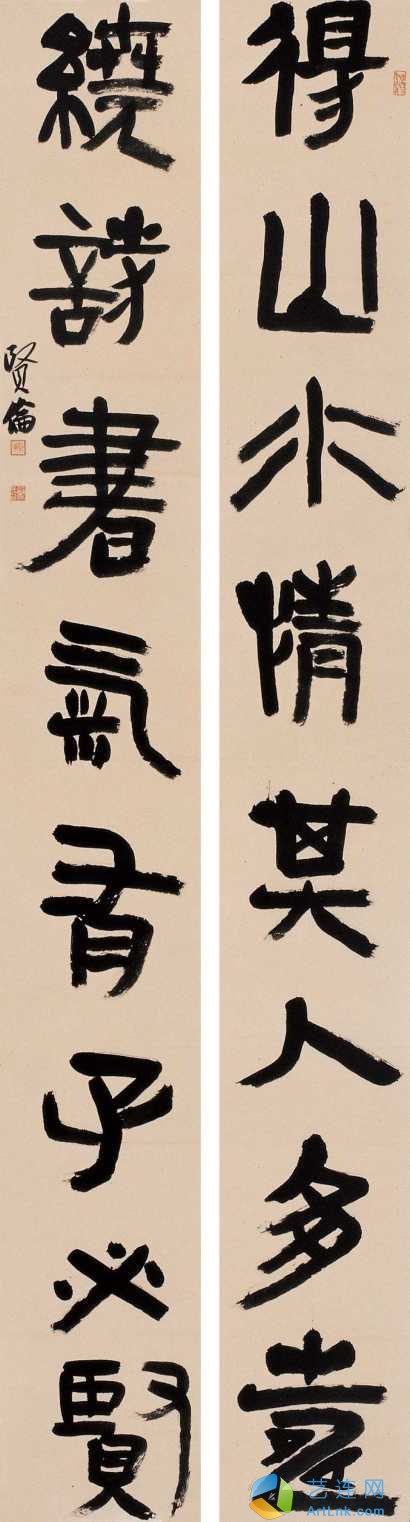 得山水情其人多壽
繞詩書氣有子必賢
賢倫
艺连网
ArtLnk.com